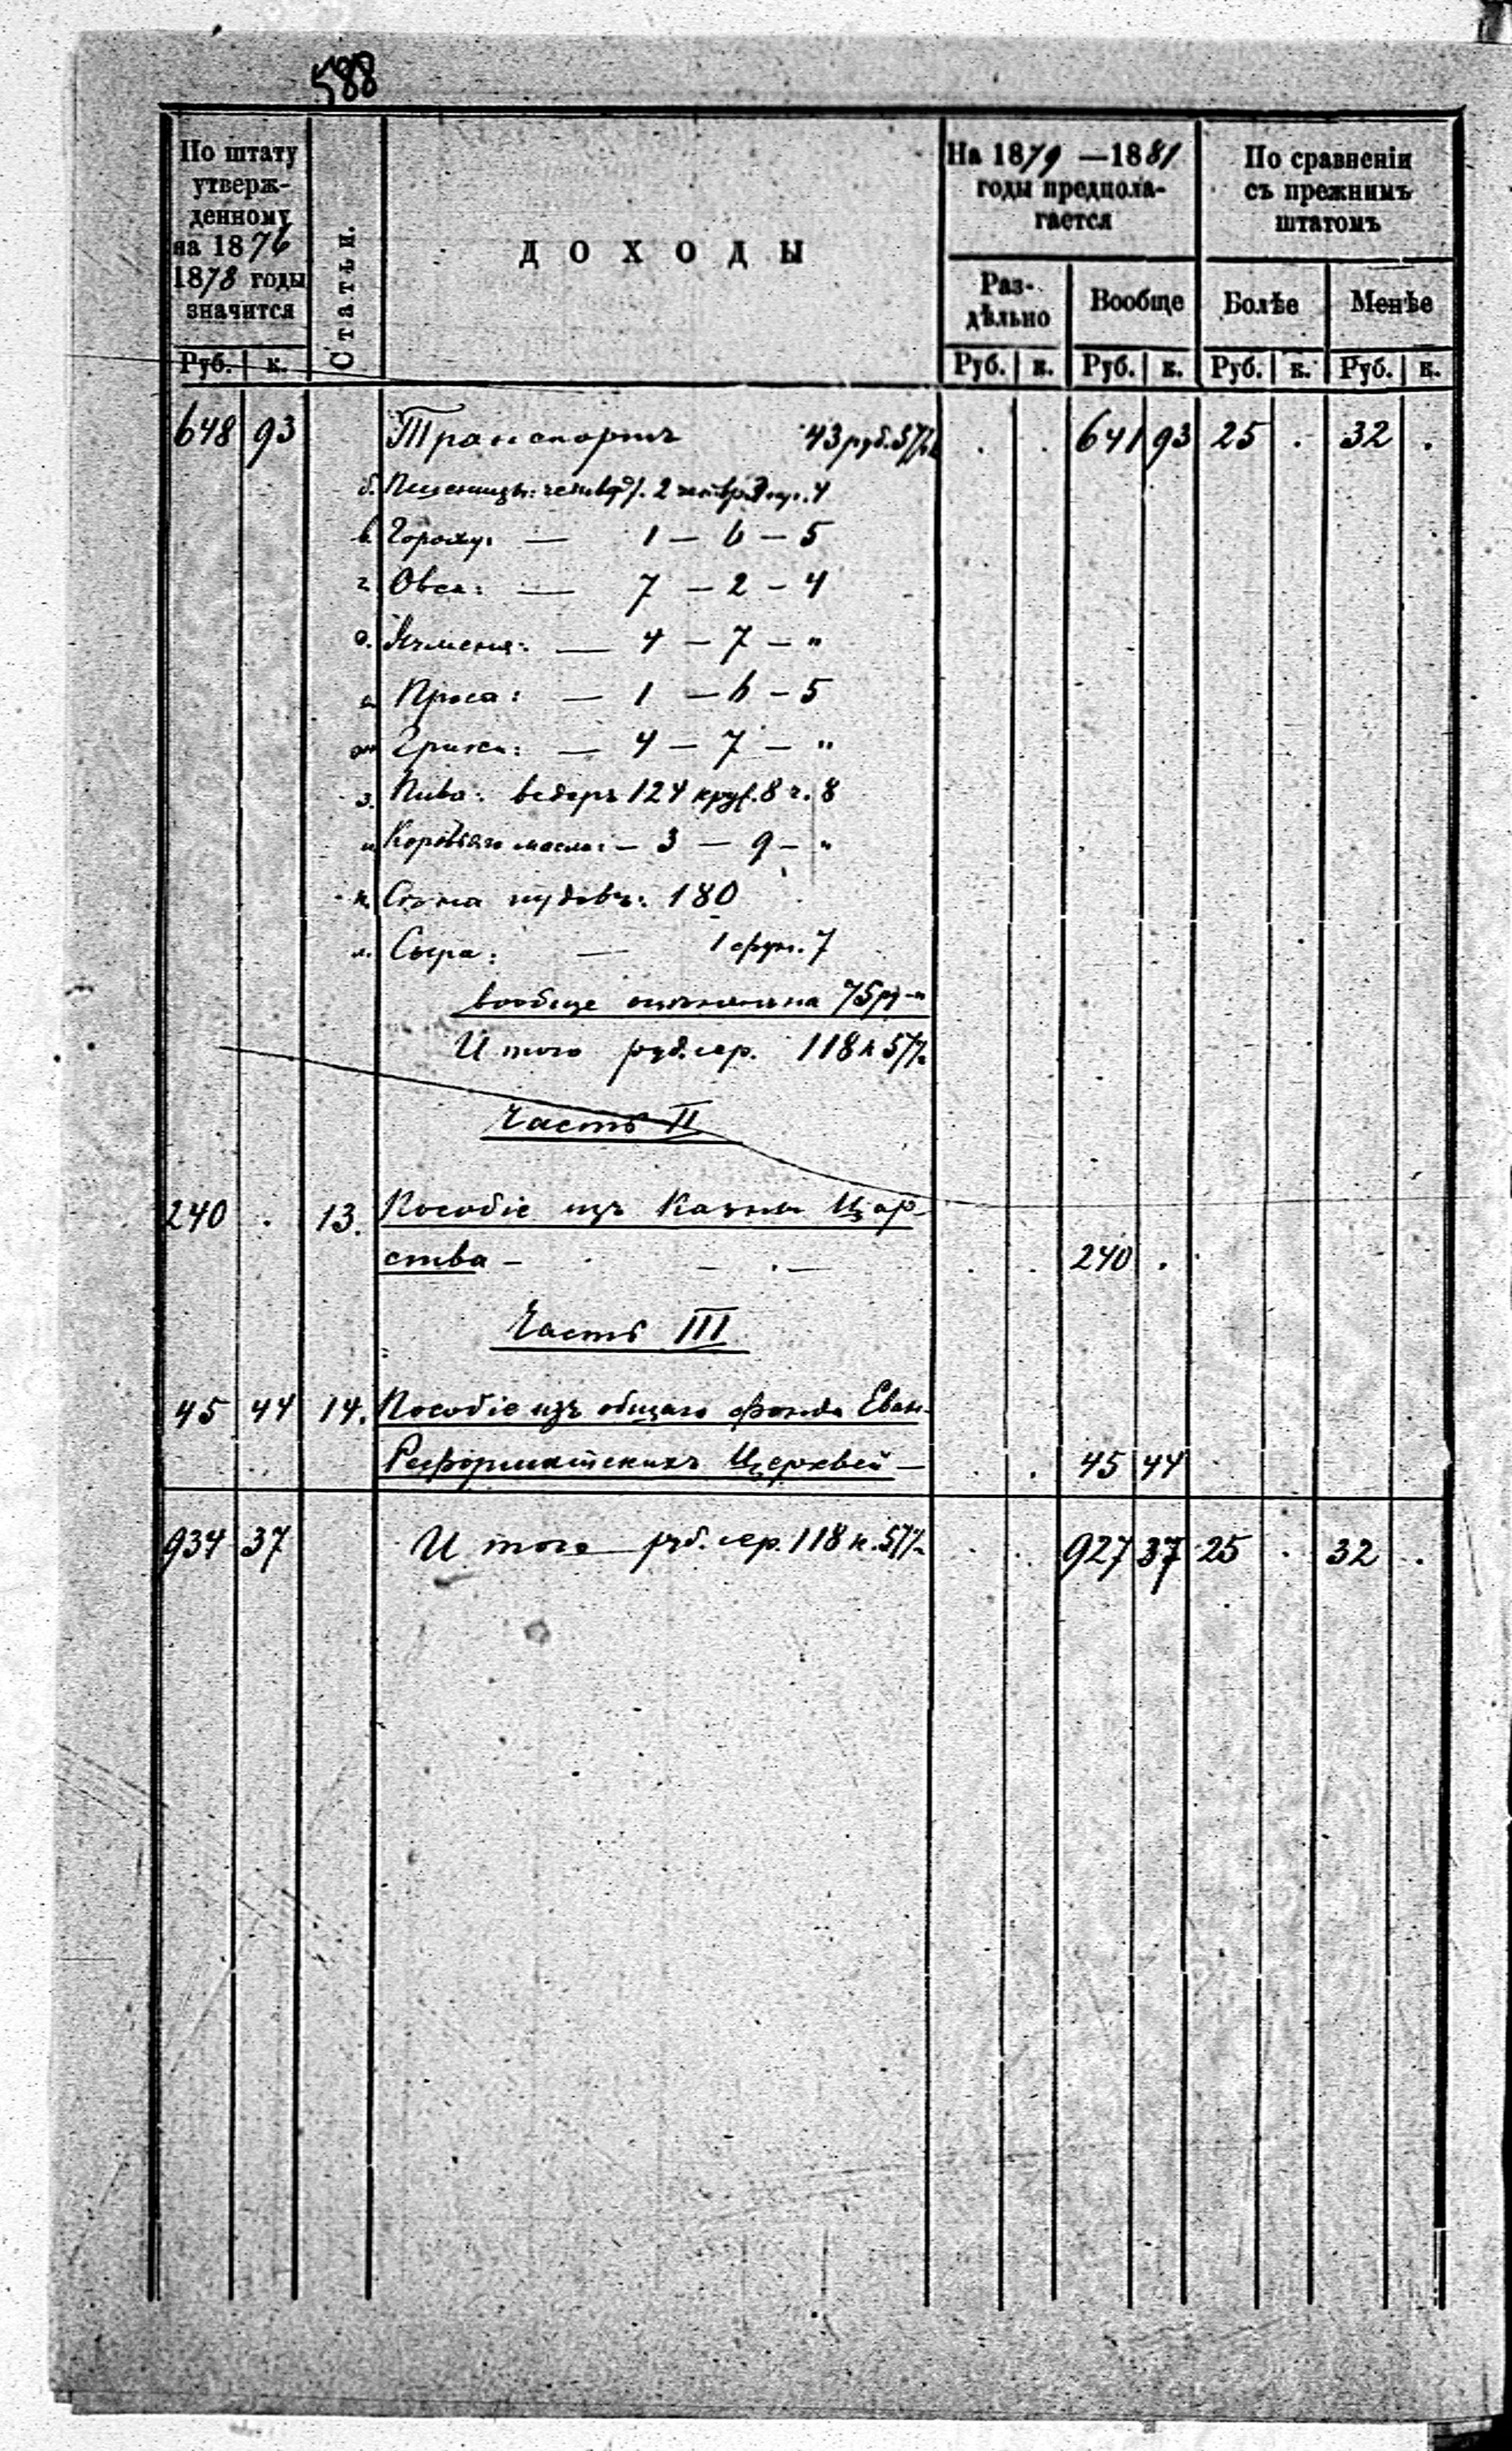 588
По штату
утверж-
денному
на 1876
1878 годы
значится
Руб. к.
Статьи.
ДОХОДЫ
На 1879 —1881
годы предпола-
гается
Раз-
дѣльно
Руб. к.
Вообще
Руб. к.
По сравненіи
съ прежнимъ
штатомъ
Болѣе
Руб. к.
Менѣе
Руб. к.
648 93 Транспортъ 43 руб. 57½ . . 641 93 25 . 32 .
б. Пшеницы: четверт. 2 четвр. 3 гар. 4
в. Гороху: — 1 — 6 — 5
г. Овса: — 7 — 2 — 4
д. Ячменя: — 4 — 7 — "
е. Проса: — 1 — 6 — 5
ж. Грыки: — 4 — 7 — "
з. Пива: ведеръ 124 круж. 8 ч. 8
и. Коровьяго масла: — 3 — 9 — "
к. Сѣна пудовъ: 180
л. Сыра: — 1 фун. 7
вообще оцѣнены на 75 р — "
Итого руб. сер. 118 к 57½
Часть II
240 . 13. Пособіе изъ Казны Цар-
ства — . — . — . . 240 .
Часть III
45 44 14. Пособіе изъ общаго фонда Еван-
Реформатскихъ Церквей — . . 45 44
934 37 Итого руб. сер. 118 к. 57½ . . 927 37 25 . 32 .